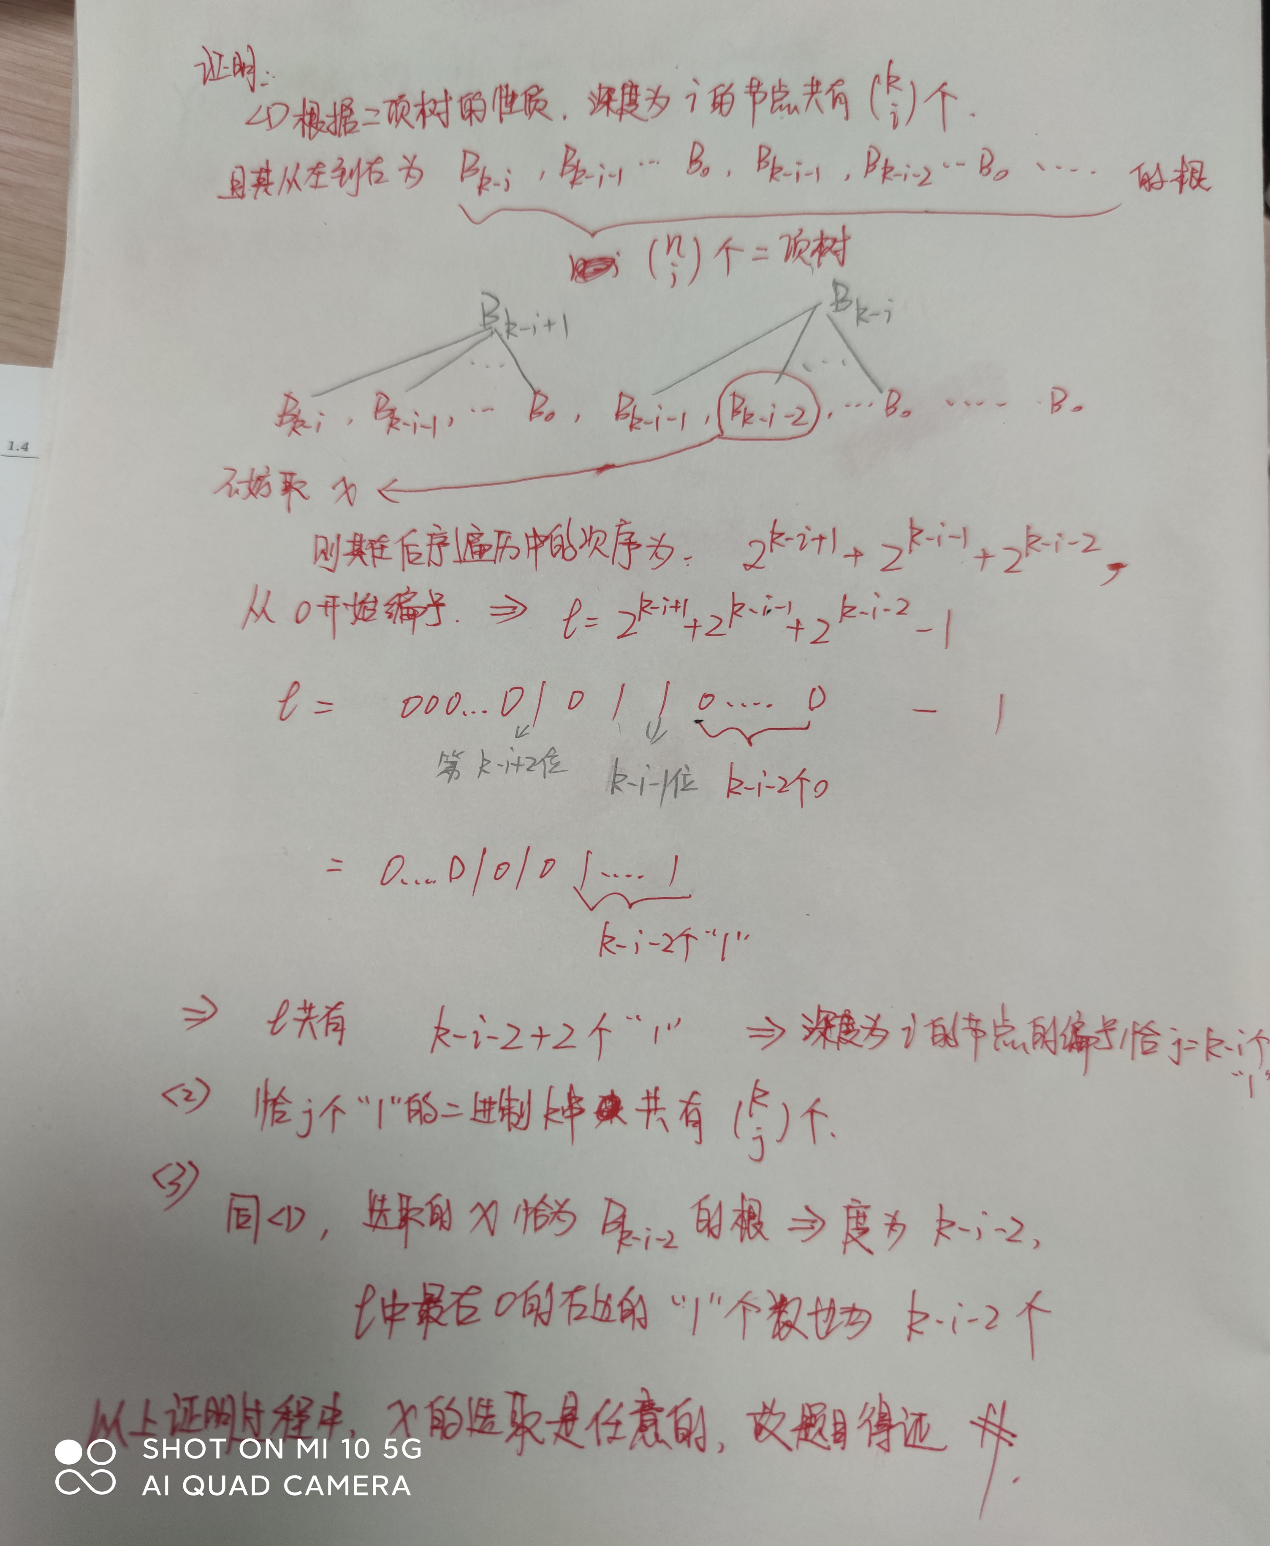 证明:
<1>根据二项树的性质. 深度为 i 的节点共有 (k i) 个.
且其从左到右为 B_{k-i}, B_{k-i-1} … B_0, B_{k-i-1}, B_{k-i-2} … B_0 ..... 的根
(n i) 个二项树
B_{k-i+1} B_{k-i}
... ...
B_{k-i}, B_{k-i-1}, … B_0, B_{k-i-1}, B_{k-i-2}, … B_0 ..... B_0
不妨取 x ←
则其在后序遍历中的次序为: 2^{k-i+1} + 2^{k-i-1} + 2^{k-i-2},
从 0 开始编号. ⇒ l = 2^{k-i+1} + 2^{k-i-1} + 2^{k-i-2} - 1
l = 000...0 1 0 1 1 0....0 - 1
第 k-i+2位 k-i-1位 k-i-2个0
= 0....0 1 0 1 0 1....1
k-i-2个"1"
⇒ l共有 k-i-2+2个"1" ⇒ 深度为 i 的节点的编号恰 j=k-i个"1"
<2> 恰 j 个"1"的二进制k中 共有 (k j) 个.
<3>
同<1>, 选取的 x 恰为 B_{k-i-2} 的根 ⇒ 度为 k-i-2,
l中最右0的右边的"1"个数也为 k-i-2个
以上证明过程中, x的选取是任意的, 故题目得证 #.
SHOT ON MI 10 5G
AI QUAD CAMERA
1.4